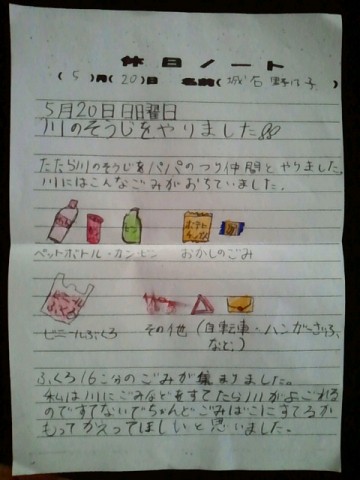 休日ノート
(5)月(20)日 名前(城石 野 子)
5月20日日曜日
川のそうじをやりました
たたら川のそうじをパパのつり仲間とやりました。
川にはこんなごみがおちていました。
ペットボトル・カン・ビン おかしのごみ
ビニールぶくろ その他(自転車・ハンガー・さいふ
など)
ふくろ16こ分のごみが集まりました。
私は川にごみなどをすてたら川がよごれる
のですてないでちゃんとごみばこにすてるか
もってかえってほしいと思いました。